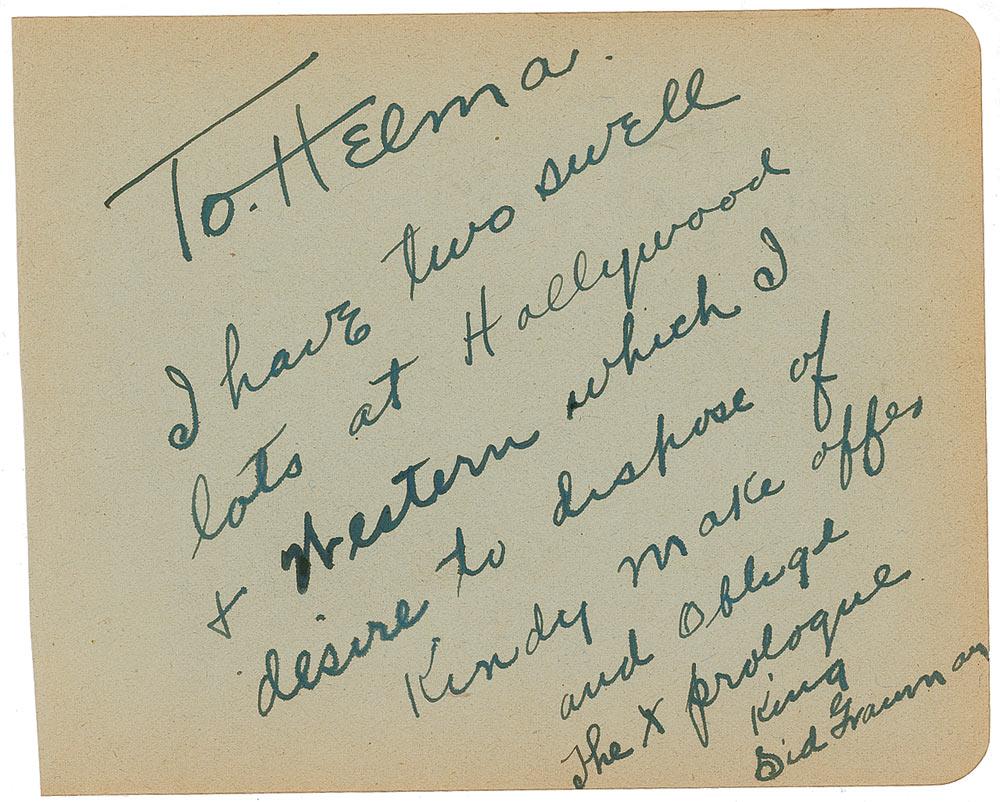 To. Helma.
I have two swell
lots at Hollywood
+ Western which I
desire to dispose of
Kindy make offer
and Obluge
The X prologue
King
Sid Grauman